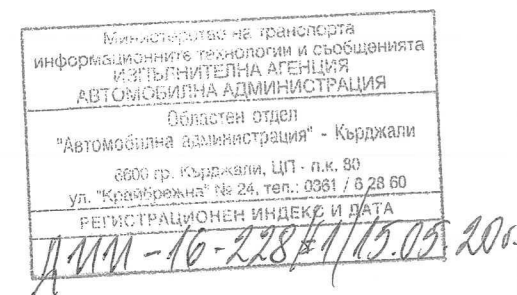 Министерство на транспорта
информационните технологии и съобщенията
ИЗПЪЛНИТЕЛНА АГЕНЦИЯ
АВТОМОБИЛНА АДМИНИСТРАЦИЯ
Областен отдел
"Автомобилна администрация" - Кърджали
6600 гр. Кърджали, ЦП - п.к. 80
ул. "Крайбрежна" № 24, тел.: 0361 / 6 28 60
РЕГИСТРАЦИОННЕН ИНДЕКС И ДАТА
-16-228/ 1/15.05. 20г.